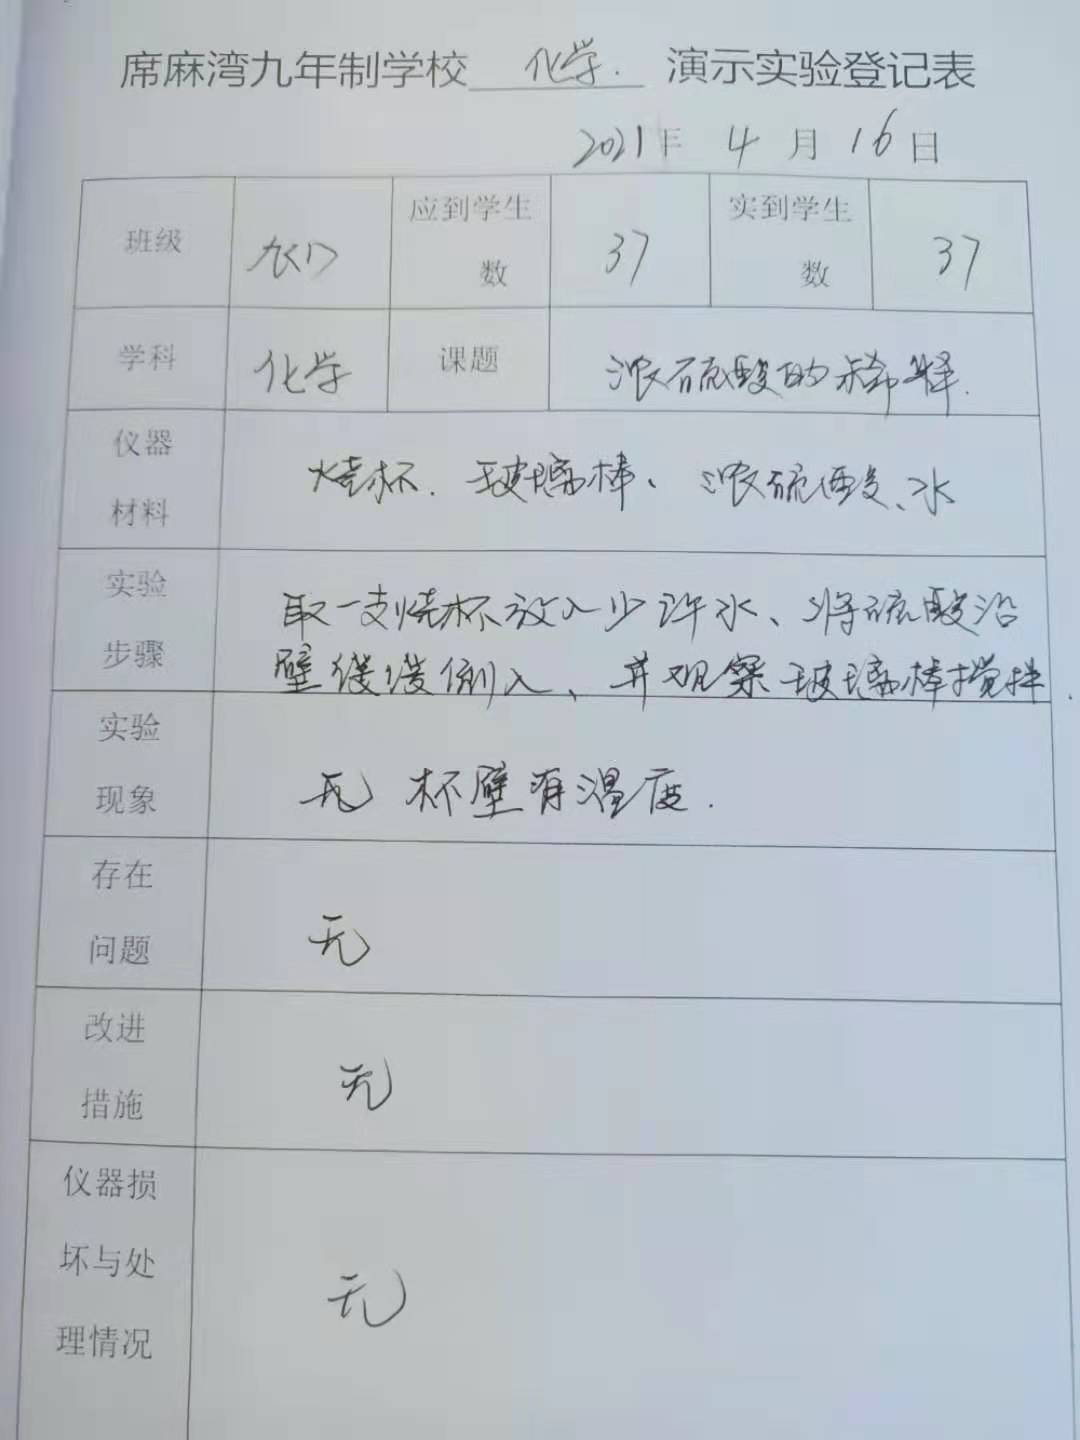 席麻湾九年制学校 化学. 演示实验登记表
2021年 4 月 16 日
班级 九(1) 应到学生数 37 实到学生数 37
学科 化学 课题 浓硫酸的稀释.
仪器材料 烧杯. 玻璃棒、浓硫酸、水
实验步骤 取一支烧杯放入少许水、将硫酸沿
壁缓缓倒入、并观察玻璃棒搅拌.
实验现象 无 杯壁有温度.
存在问题 无
改进措施 无
仪器损坏与处理情况 无